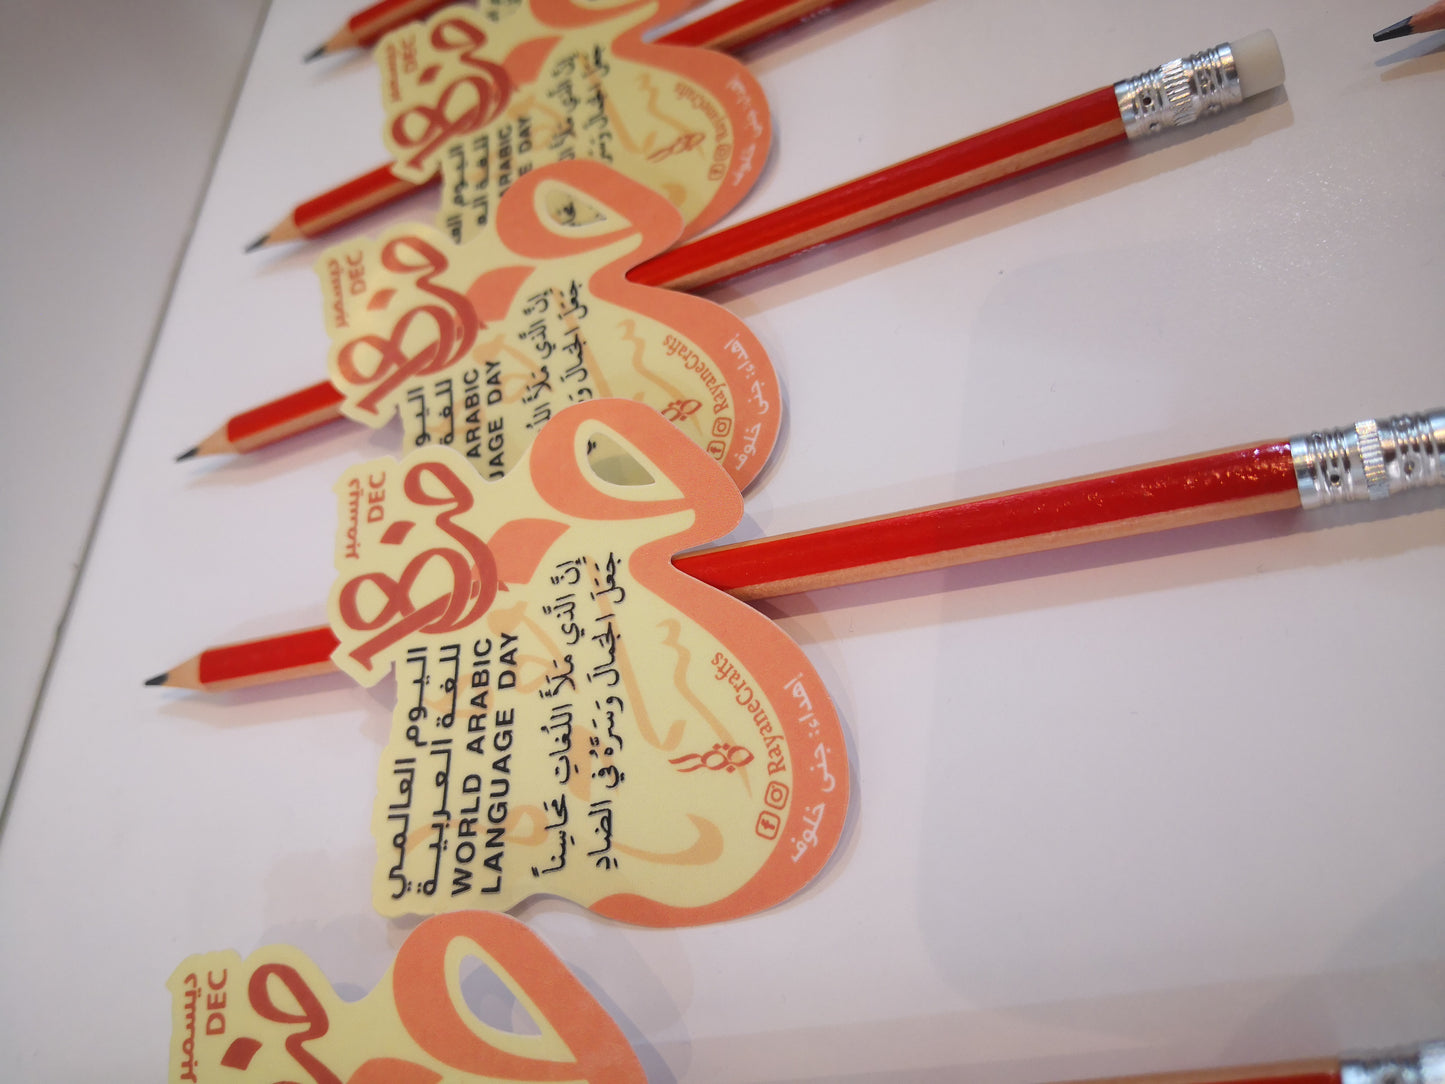 ديسمبر
DEC
18
ض
اليوم العالمي
للغة العربية
WORLD ARABIC
LANGUAGE DAY
إِنَّ الَّذِي مَلَأَ اللُّغَاتِ مَحَاسِناً
جَعَلَ الجَمالَ وَسَرَّهُ فِي الضادِ
RayaneCrafts
إهداء: جنى خلوف
ديسمبر
DEC
18
ض
اليو
للغة
ARABIC
UAGE DAY
إِنَّ الَّذِي مَلَأَ
جَعَلَ الجَمالَ وَ
RayaneCrafts
إهداء: جنى خلوف
ديسمبر
DEC
18
ض
اليوم الع
للغة الع
ARABIC
E DAY
إِنَّ الَّذِي مَلَأَ
جَعَلَ الجَمالَ وَسَرَّ
RayaneCrafts
إهداء: جنى خلوف
ديسمبر
DEC
ض